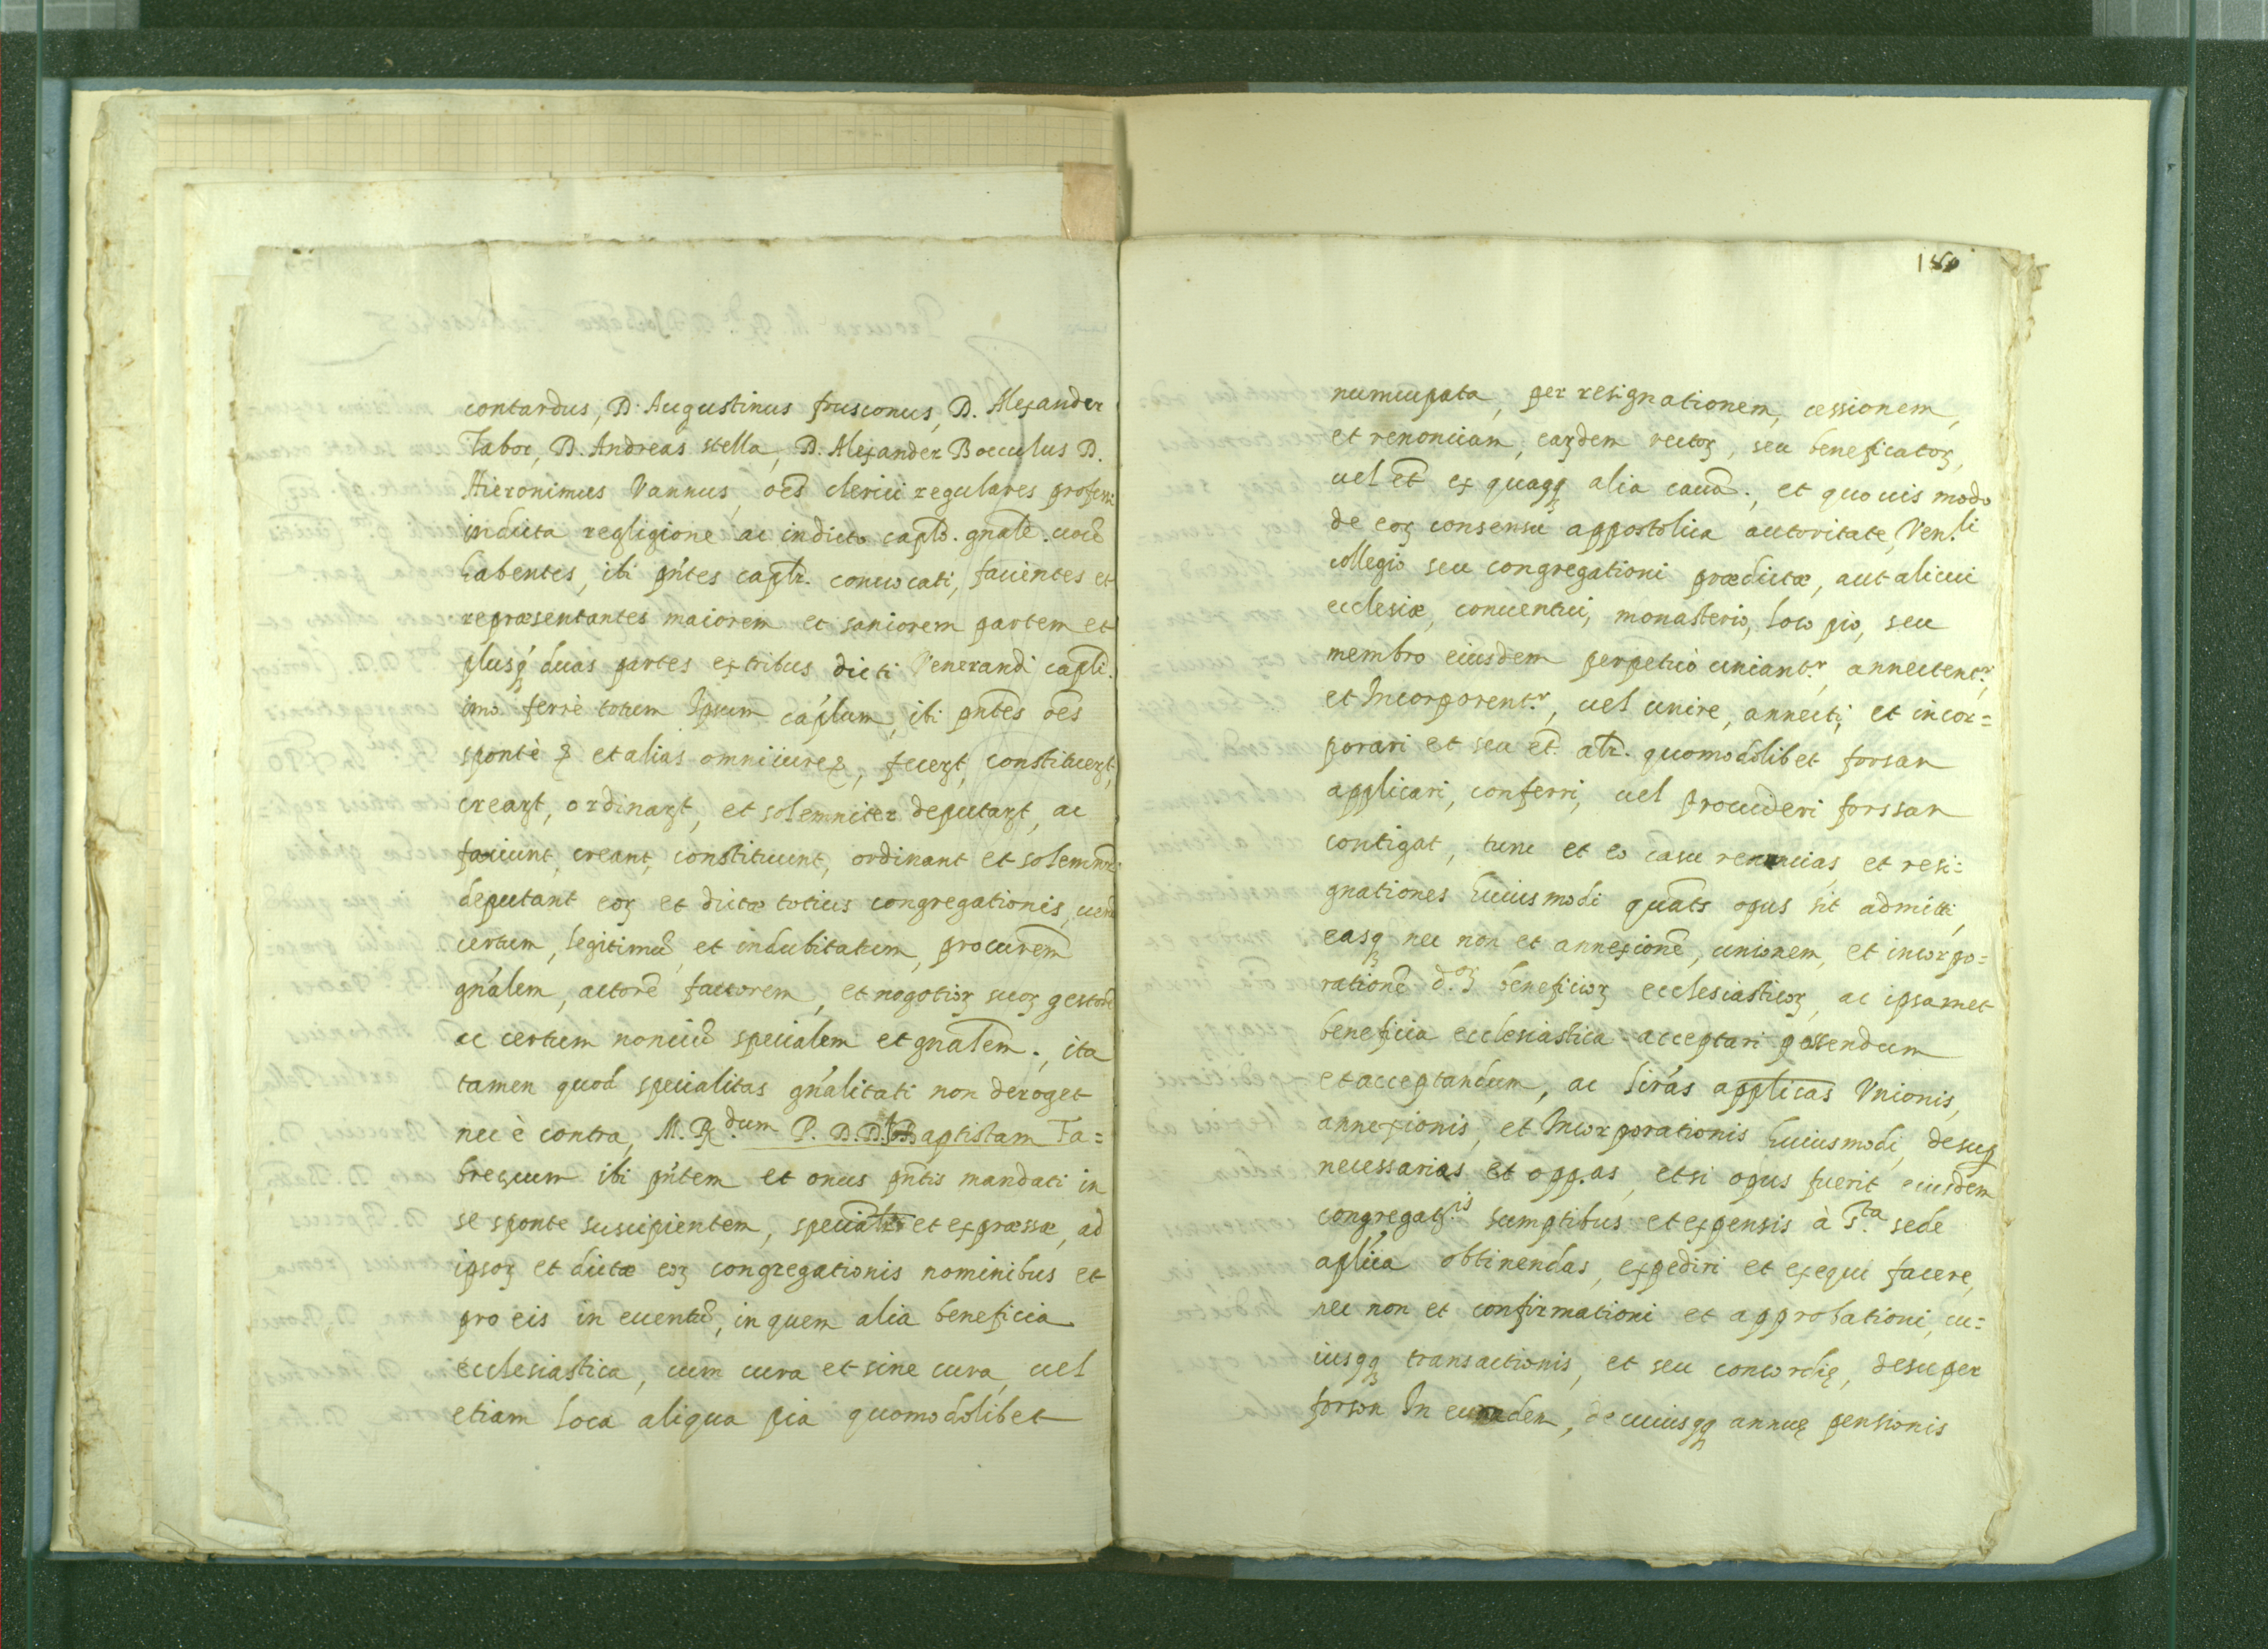 contardus, D. Augustinus frusconus, D. Alexander
Tabor, D. Andreas stella, D. Alexander Bocculus D.
Hieronimus Vannus, oēs clerici regulares professi
in dicta regligione ac in dicto caplō. gnalē. uocē
habentes, ibi pn̄tes caplr̄. conuocati, facientes et
repræsentantes maiorem et saniorem partem et
plusq̨ duas partes ex tribus dicti Venerandi capli.
imo ferrè totum Ipsum cap̄lum, ibi pn̄tes oēs
spontè & et alias omni iure &, fecerꝫt, constituerꝫt,
crearꝫt, ordinarꝫt, et solemniter deputarꝫt, ac
faciunt, creant, constituunt, ordinant et solemnr̄
deputant eoꝝ et dictæ totius congregationis uerū
certum, legitimū et indubitatum, procurem̄
gn̄alem, actorē factorem, et nogotioꝝ suoꝝ gestorē
ac certum nonciū specialem et gnalem̄., ita
tamen quod specialitas gn̄alitati non deroget
nec è contra, M. R.dum P. D. D. Jo: Baptistam Fa=
brescum ibi pn̄tem et onus pn̄tis mandati in
se sponte suscipientem, specialr̄ et expræssæ, ad
ipsoꝝ et dictæ eoꝝ congregationis nominibus et
pro eis in euentū, in quem alia beneficia
ecclesiastica, cum cura et sine cura, uel
etiam loca aliqua pia quomodolibet
180
numcupata, per resignationem, cessionem,
et renonciam, earꝫdem rectoꝝ, seu beneficatoꝝ,
uel et̄ ex quaqq̨ alia causā., et quouis modo
de eoꝝ consensu appostolica autoritate, Ven.li
collegio seu congregationi prædictæ, aut alicui
ecclesiæ, conuentui, monasterio, loco pio, seu
membro eiusdem perpetuò uniant.r, annectent.r,
et Incorporent.r, uel unire, annecti, et incor=
porari et seu et̄ alr̄. quomodolibet forsan
applicari, conferri, uel prouideri forssan
contigat, tunc et eo casu renuncias, et resi=
gnationes huiusmodi quat̄s opus sit admitti,
easq̨ nec non et annexionē, unionem, et incorpo=
rationē d.oꝝ beneficioꝝ ecclesiasticoꝝ, ac ipsamet
beneficia ecclesiastica acceptari possendum
et acceptandum, ac lir̄as applicas̄ Vnionis,
annexionis, et Incorporationis huiusmodi, desup̱
necessarias et opp.as, et si opus fuerit eiusdem
congregat.is sumptibus et expensis à S.ta sede
aplīca obtinendas, expediri et exequi facere,
nec non et confirmationi et approbationi, cu=
iusqq̨ transactionis, et seu concordię, desuper
forson In eundem, de cuiusqq̨ annuę pensionis